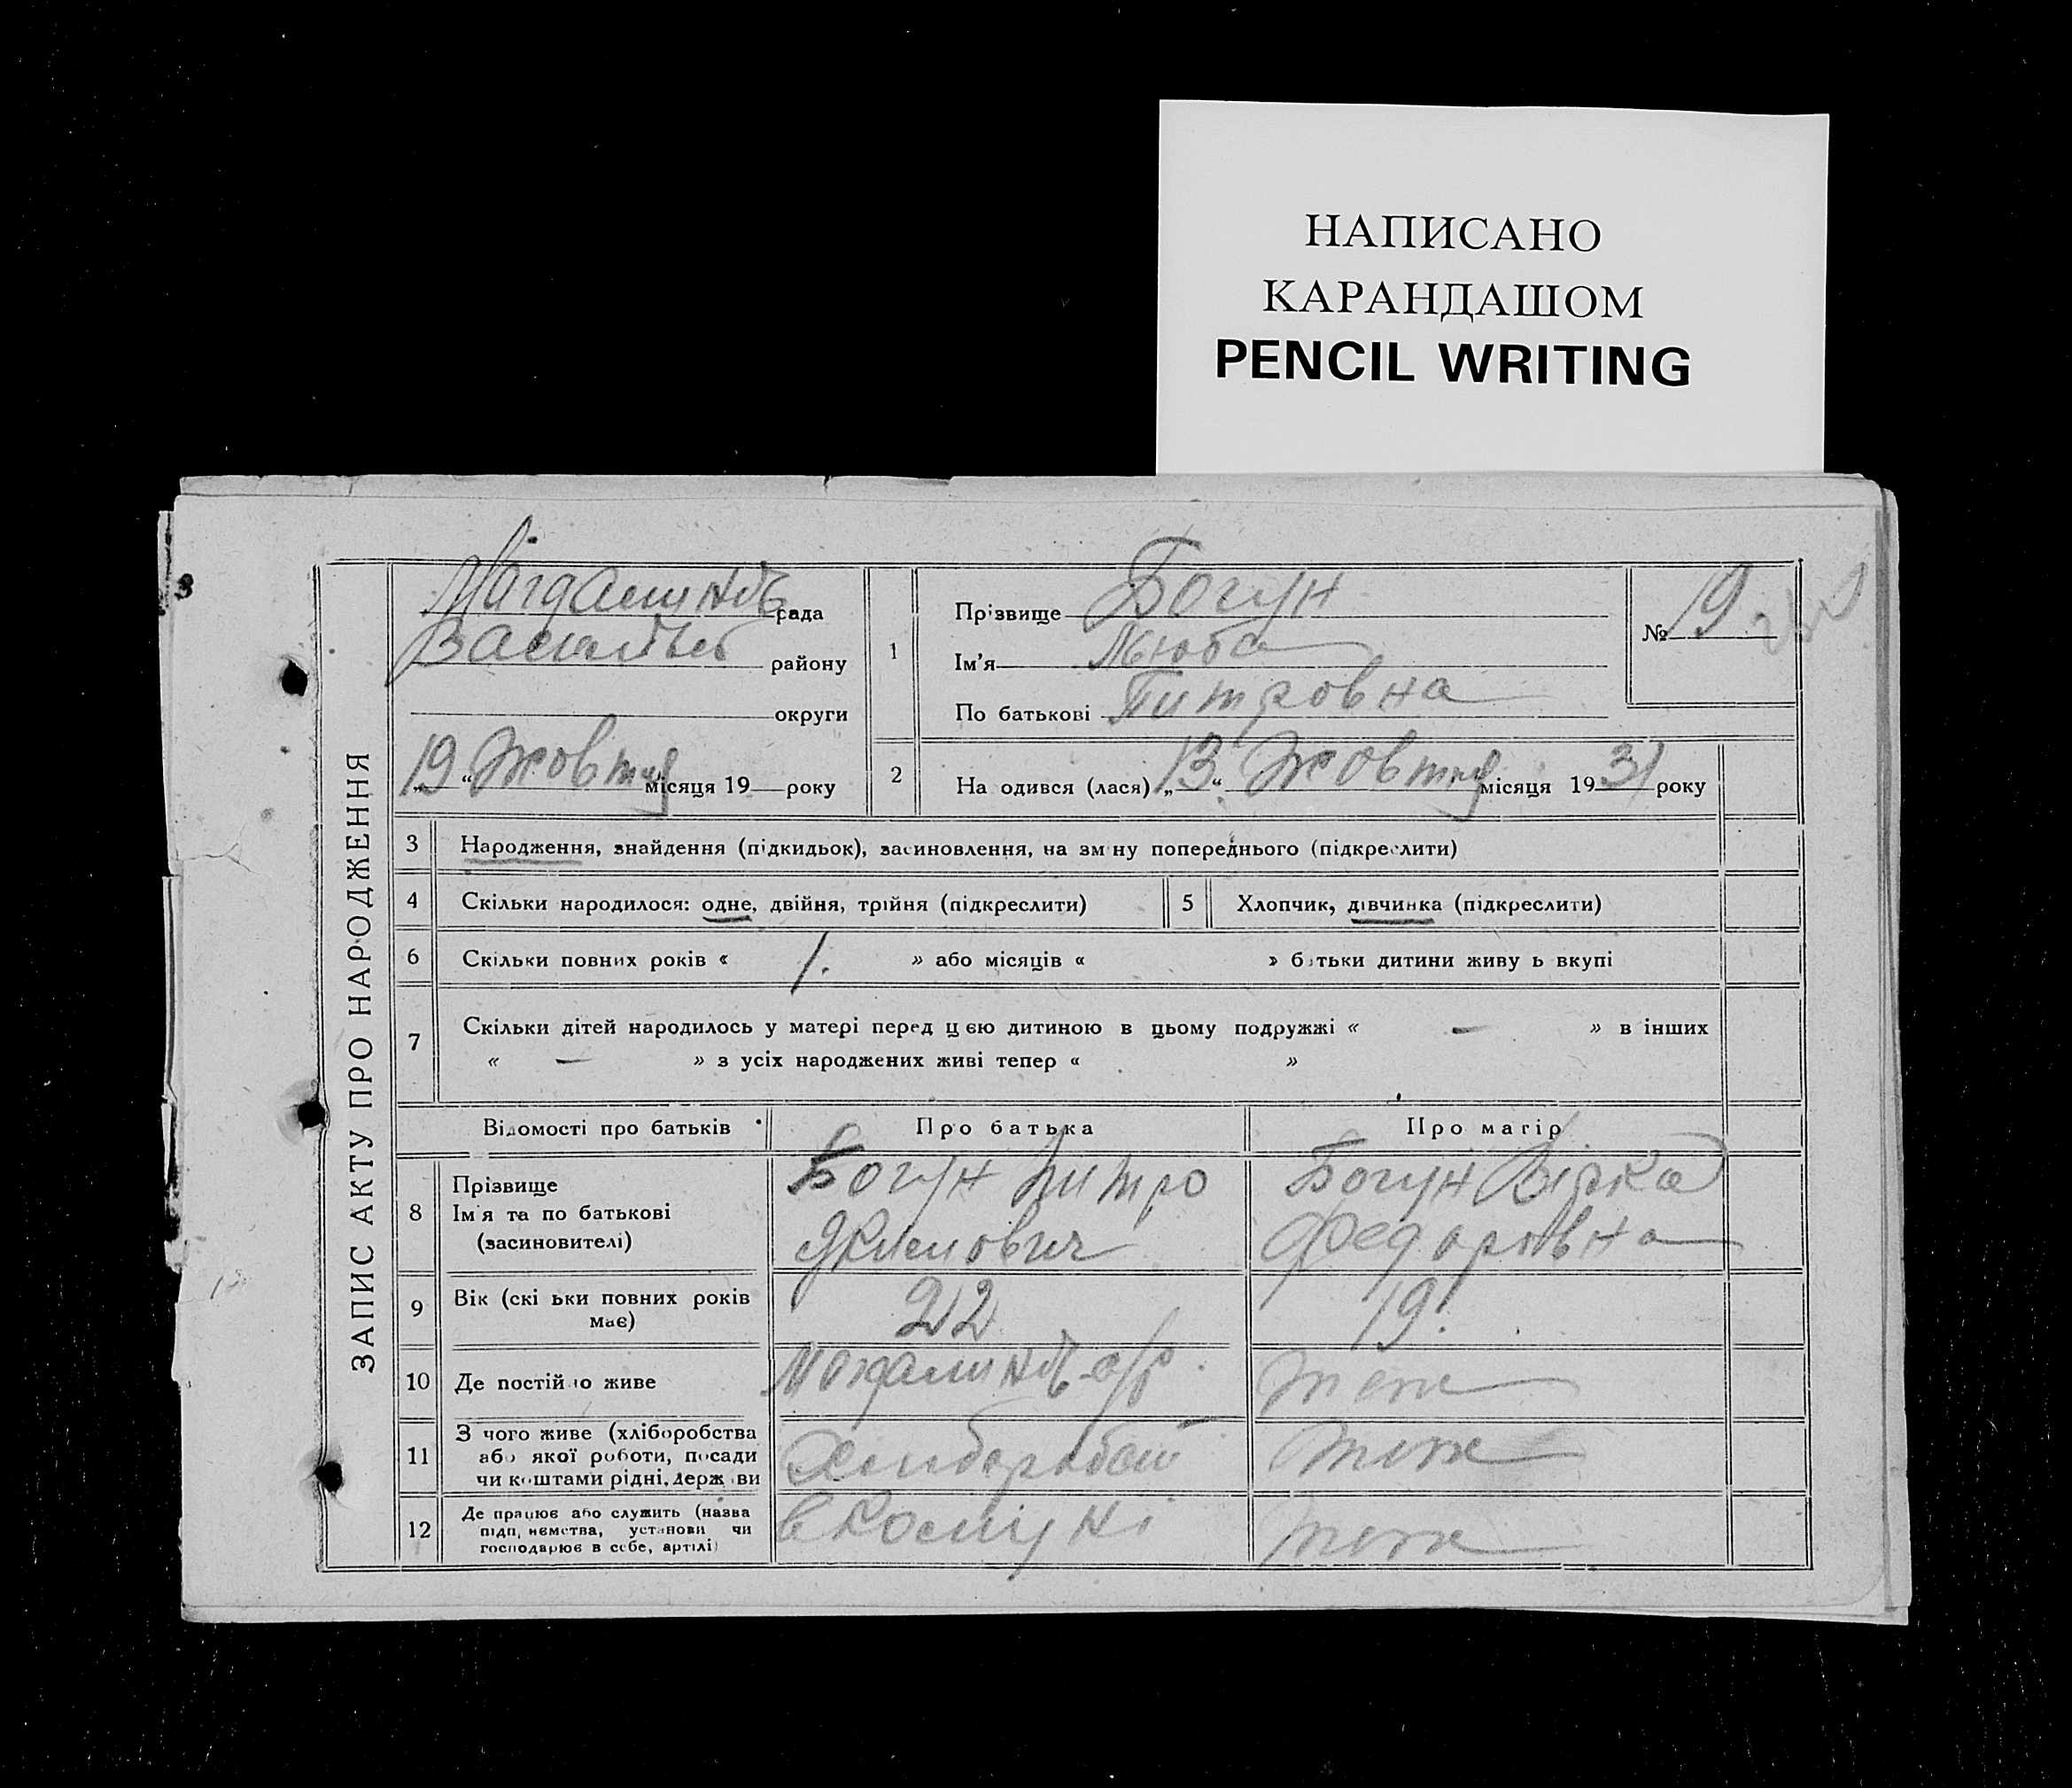 НАПИСАНО
КАРАНДАШОМ
PENCIL WRITING
ЗАПИС АКТУ ПРО НАРОДЖЕННЯ
рада
району
округи
19 „ “ Жовтня місяця 19 року
1
Прізвище Богун
Ім'я Люба
По батькові Питровна
№ 19
2
На одився (лася) „ 13 “ Жовтня місяця 1931 року
3 Народження, знайдення (підкидьок), засиновлення, на зм ну попереднього (підкреслити)
4 Скільки народилося: одне, двійня, трійня (підкреслити)
5 Хлопчик, дівчинка (підкреслити)
6 Скільки повних років « 1. » або місяців « » батьки дитини живу ь вкупі
7 Скільки дітей народилось у матері перед цією дитиною в цьому подружжі « — » в інших
« — » з усіх народжених живі тепер « »
Відомості про батьків
Про батька
Про матір
8 Прізвище
Ім'я та по батькові
(засиновителі)
Богун Питро
Якимович
Богун Вірка
Федоровна
9 Вік (скі ьки повних років
має)
22
19.
10 Де постійно живе
с/р.
тоже
11 З чого живе (хліборобства
або якої роботи, посади
чи коштами рідні, держави
тоже
12 Де працює або служить (назва
підп, иємства, установи чи
господарює в себе, артілі)
в Комуні
тоже